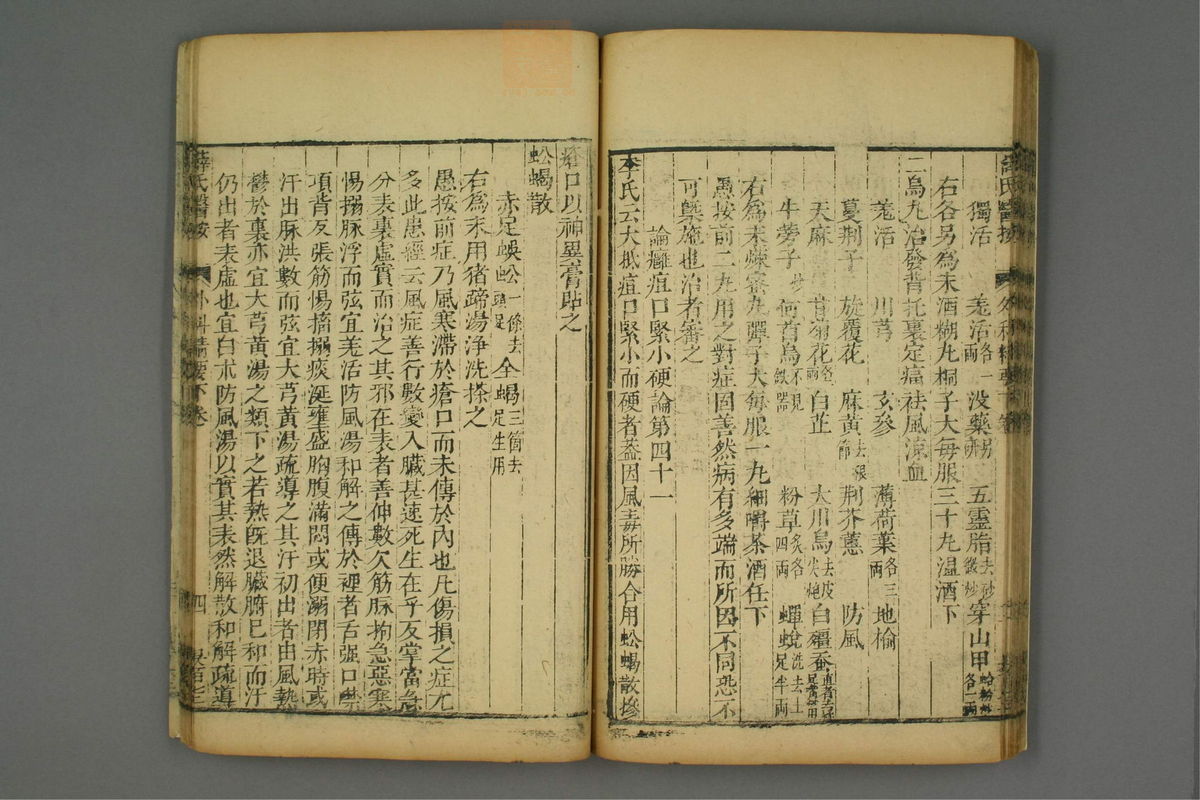 獨活 羌活各一兩 没藥 五靈脂去砂石炒 穿山甲蛤粉炒各一兩
右各另爲末酒糊丸桐子大每服三十丸温酒下
二烏丸治發背托裏定痛祛風涼血
羌活 川芎 玄參 薄荷葉各三兩 地榆
蔓荆子 旋覆花 麻黄去根節 荆芥蕙 防風
天麻 各兩 白芷 大川烏去皮尖炮 白殭蚕
牛蒡子炒 何首烏不見鐵器 粉草炙各四兩 蟬蛻洗去土足半兩
右爲末煉蜜丸彈子大每服一丸細嚼茶酒任下
愚按前二丸用之對症固善然病有多端而所因不同恐不
可槩施也治者審之
論癰疽口緊小硬論第四十一
李氏云大抵疽口緊小而硬者蓋因風毒所勝合用蚣蝎散摻
瘡口以神異膏貼之
蚣蝎散
赤足蜈蚣一條去頭足 全蝎三箇去足生用
右爲末用猪蹄湯浄洗搽之
愚按前症乃風寒滯於瘡口而未傳於内也凡傷損之症尤
多此患經云風症善行數變入臟甚速死生在乎反掌當急
分表裏虚實而治之其邪在表者善伸數欠筋脉拘急惡寒
惕搦脉浮而弦宜羌活防風湯和解之傳於裡者舌强口噤
項背反張筋惕搐搦痰涎壅盛胸腹滿悶或便溺閉赤時或
汗出脉洪數而弦宜大芎黄湯疏導之其汗初出者由風熱
鬱於裏亦宜大芎黄湯之類下之若熱旣退臟腑巳和而汗
仍出者表虚也宜白朮防風湯以實其表然解散和解疏導
薛氏醫按 外科精要下卷 四